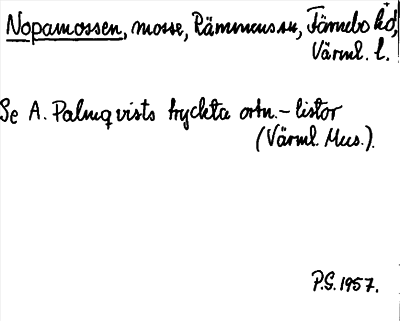 Nopamossen, mosse, Rämmens sn, Färnebo hd,
Värml. l.
Se A. Palmqvists tryckta ortn.-listor
(Värml. Mus.).
P.G. 1957.